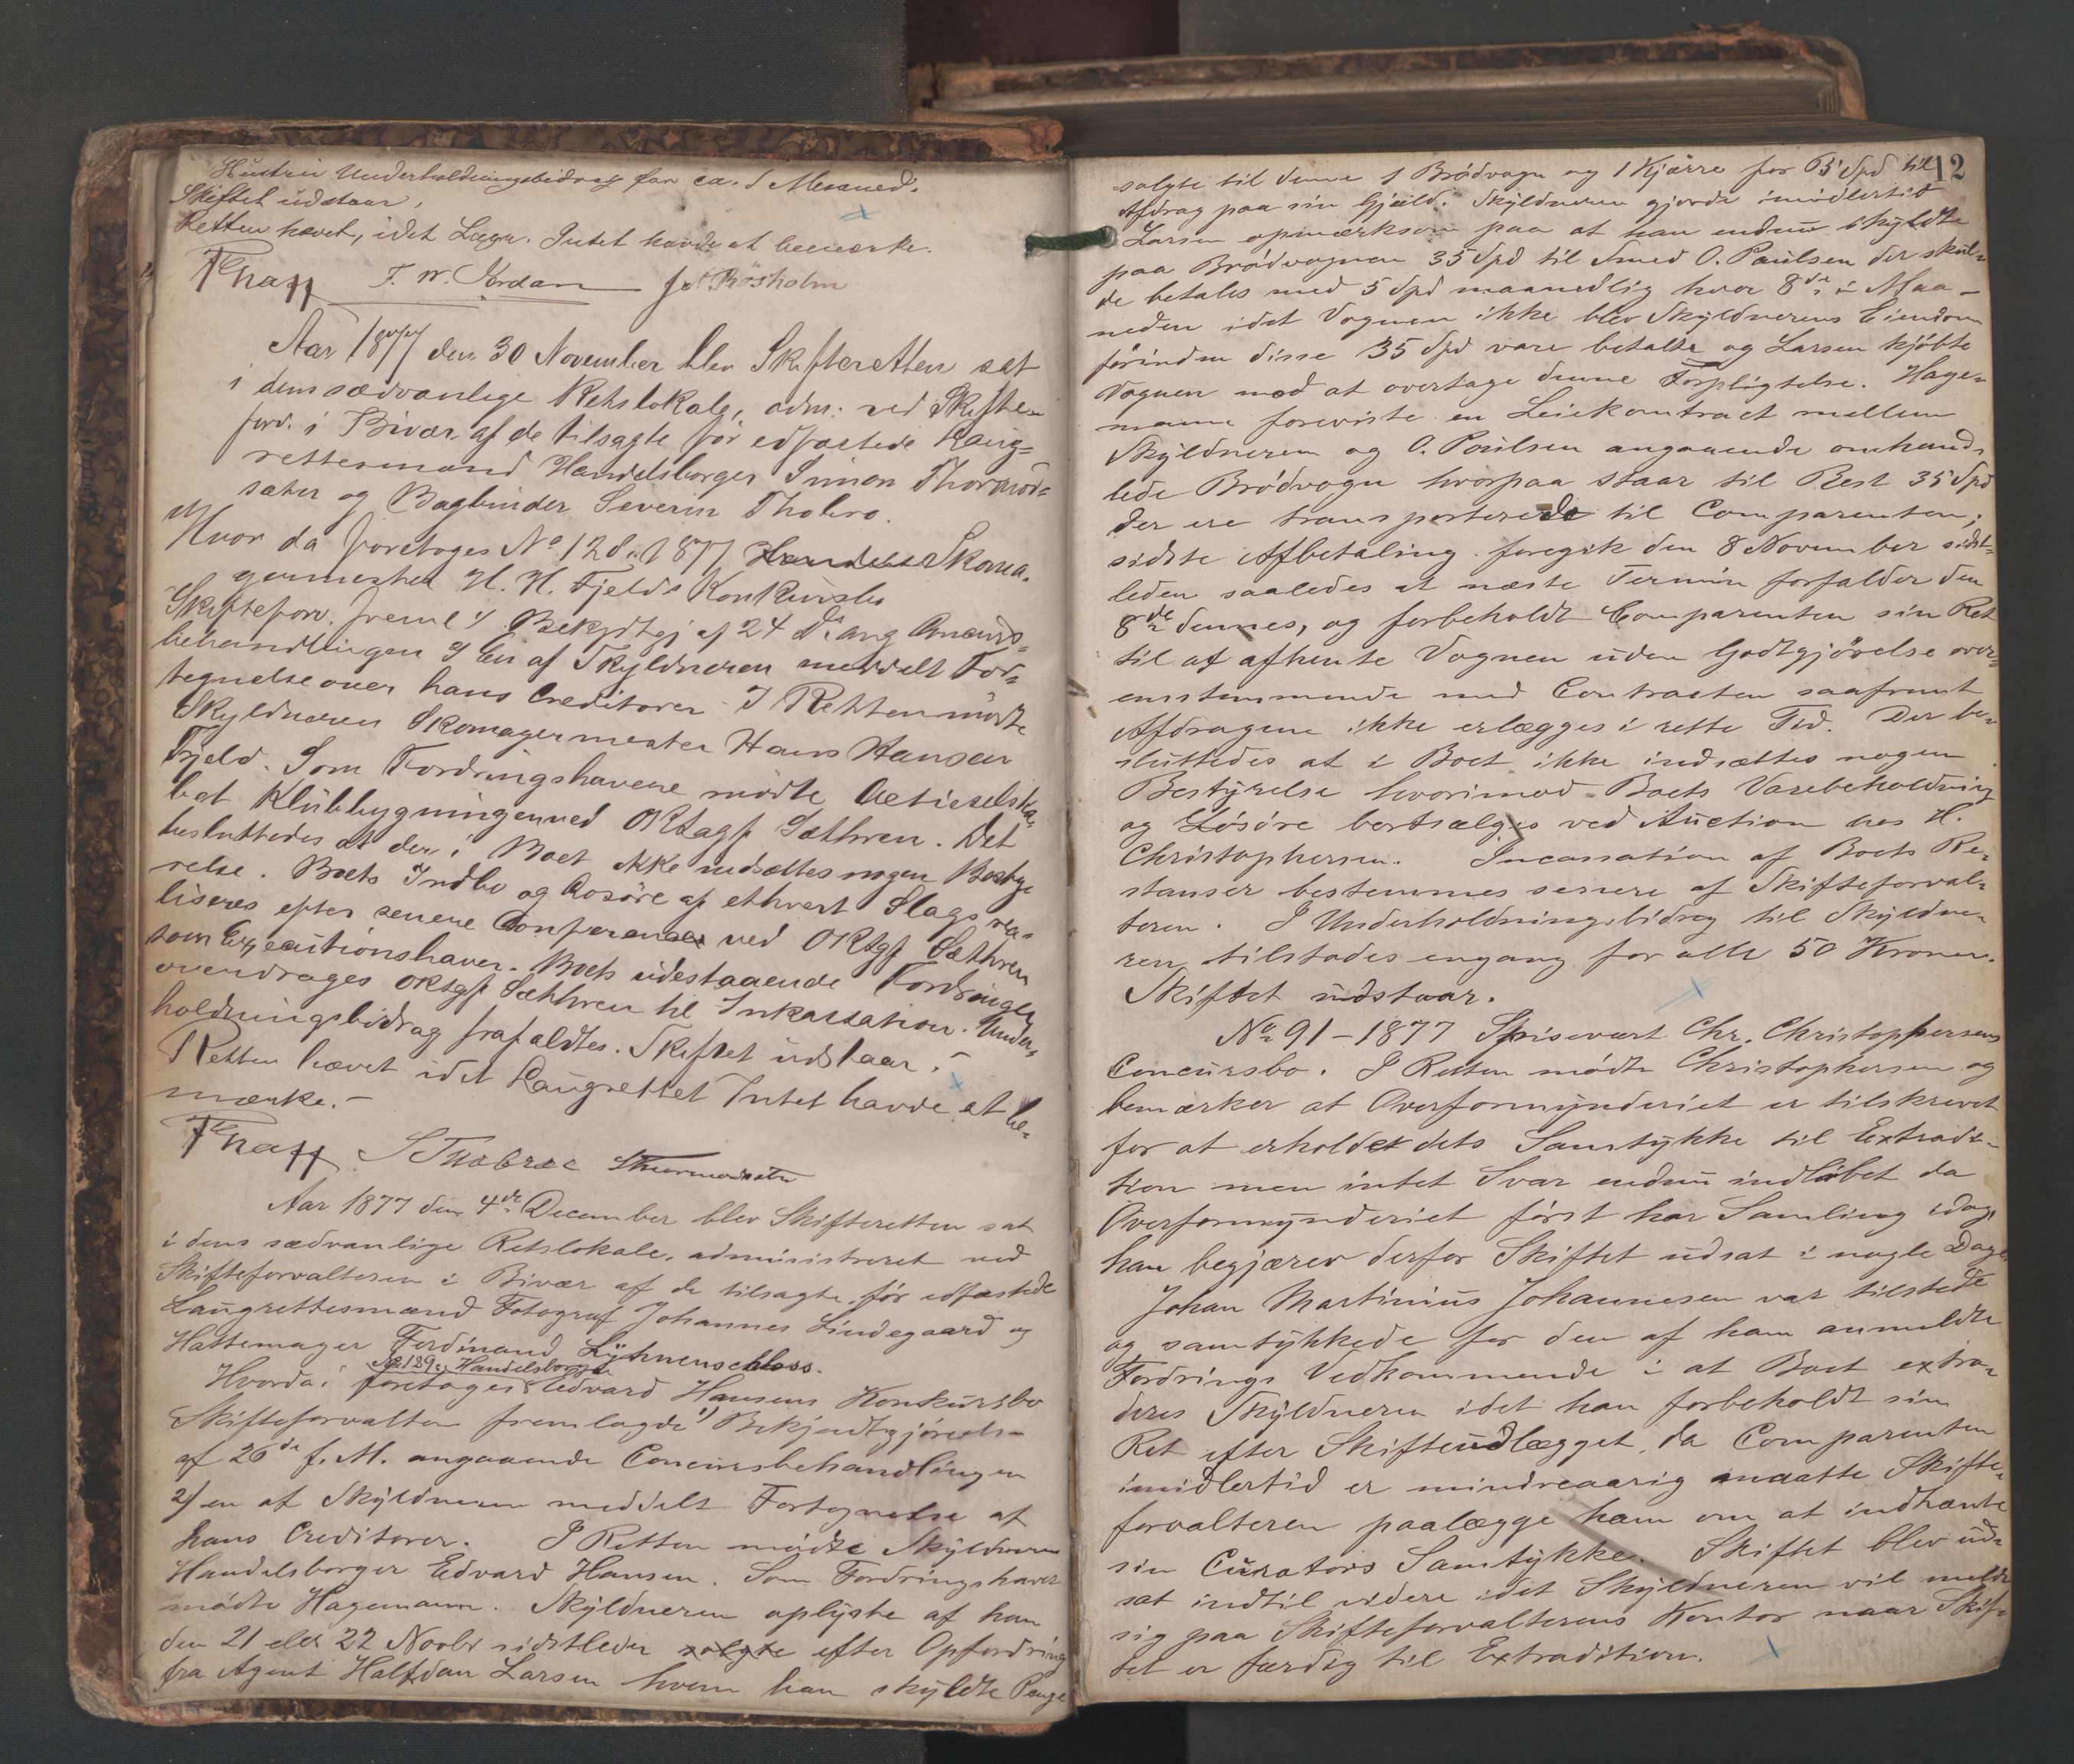 Hustru Underholdningsbidrag for ca. 1 Maaned.
Skiftet udstaar.
Retten hævet, idet Lagr. Intet havde at bemærke.
F. W. Jordan Bösholm
Aar 1877 den 30 November blev Skifteretten sat
i dens sædvanlige Retslokale, adm: ved Skifte-
forv. i Bivær af de tilsagte før edfæstede Laug-
rettesmænd Handelsborger Simon Thormod-
sæter og Bogbinder Severin Thobro.
Hvor da foretoges No 128.1877 Skoma-
germester H. H. Fjelds Konkursbo
Skifteforv. freml 1/ Bekjdtgj af 24 ds ang Concurs-
behandlingen 2/ En af Skyldneren meddelt For-
tegnelse over hans Creditorer. I Retten mödte
Skyldneren Skomagermester Hans Hansen
Fjeld. Som Fordringshavere mödte Actieselska-
bet Klubbygningen ved ORsagf. Sæthren. Det
besluttedes at der i Boet ikke indsættes nogen Besty-
relse. Boets Indbo og Lösöre af ethvert Slags rea-
liseres efter senere Conferance ved ORsgf Sæthren
som Executionshaver. Boets udestaaende Fordringer
overdrages ORsgf Sæthren til Inkassation. Under-
holdningsbidrag frafaldtes. Skiftet udstaar. -
Retten hævet idet Laugrettet Intet havde at be-
mærke. -
Aar 1877 den 4de December blev Skifteretten sat
i dens sædvanlige Retslokale, administreret ved
Skifteforvalteren i Bivær af de tilsagte, før edfæstede
Laugrettesmænd Fotograf Johannes Lindegaard og
Hattemager Ferdinand Lyhnenschloss.
No 129. Handelsborger
Hvorda: foretoges Edvard Hansens Konkursbo
Skifteforvalteren fremlagde 1) Bekjendtgjörelse
af 26de f. M. angaaende Concursbehandlingen
2) en af Skyldneren meddelt Fortegnelse af
hans Creditorer. I Retten mødte Skyldneren
Handelsborger Edvard Hansen. Som Fordringshaver
mødte Hagemann. Skyldneren oplyste at han
den 21 eller 22 Novbr sidstleden solgte efter Opfordring
fra Agent Halfdan Larsen hvem han skyldte Penge
12
solgte til denne 1 Brødvogn og 1 Kjærre for 65 Spd til
Afdrag paa sin Gjæld. Skyldneren gjorde imidlertid
Larsen opmærksom paa at han endnu skyldte
paa Brødvognen 35 Spd til Smed O. Paulsen der skul-
de betales med 5 Spd maanedlig hver 8de i Maa-
neden idet Vognen ikke blev Skyldnerens Eiendom
førinden disse 35 Spd vare betalte og Larsen kjøbte
Vognen mod at overtage denne Forpligtelse. Hage-
mann foreviste en Leiekontract mellem
Skyldneren og O. Poulsen angaaende omhand-
lede Brødvogn hvorpaa staar til Rest 35 Spd
der ere transporterede til Comparenten;
sidste Afbetaling foregik den 8 November sidst-
leden saaledes at næste Termin forfalder den
8de dennes, og forbeholdt Comparenten sin Ret
til at afhente Vognen uden Godtgjørelse over-
ensstemmende med Contracten saafremt
Afdragene ikke erlægges i rette Tid. Der be-
sluttedes at i Boet ikke indsættes nogen
Bestyrelse hvorimod Boets Varebeholdning
og Løsøre bortsælges ved Auction hos H.
Christophersen. Incassation af Boets Re-
stanser bestemmes senere af Skifteforval-
teren. I Underholdningsbidrag til Skyldne-
ren tilstodes engang for alle 50 Kroner.
Skiftet udstaar.
No 91 - 1877 Spisevært Chr. Christophersens
Concursbo. I Retten mødte Christophersen og
bemærker at Overformynderiet er tilskrevet
for at erholdet dets Samtykke til Extradi-
tion men intet Svar endnu indløbet da
Overformynderiet først har Samling idag,
han begjærer derfor Skiftet udsat i nogle Dage
Johan Martinius Johannesen var tilstede
og samtykkede for den af ham anmeldte
Fordrings Vedkommende i at Boet extra-
deres Skyldneren idet han forbeholdt sin
Ret efter Skifteudlægget, da Comparenten
imidlertid er mindreaarig maatte Skifte-
forvalteren paalægge ham om at indhænte
sin Curators Samtykke. Skiftet blev ud-
sat indtil videre idet Skyldneren vil melde
sig paa Skifteforvalterens Kontor naar Skif-
tet er færdig til Extradition.